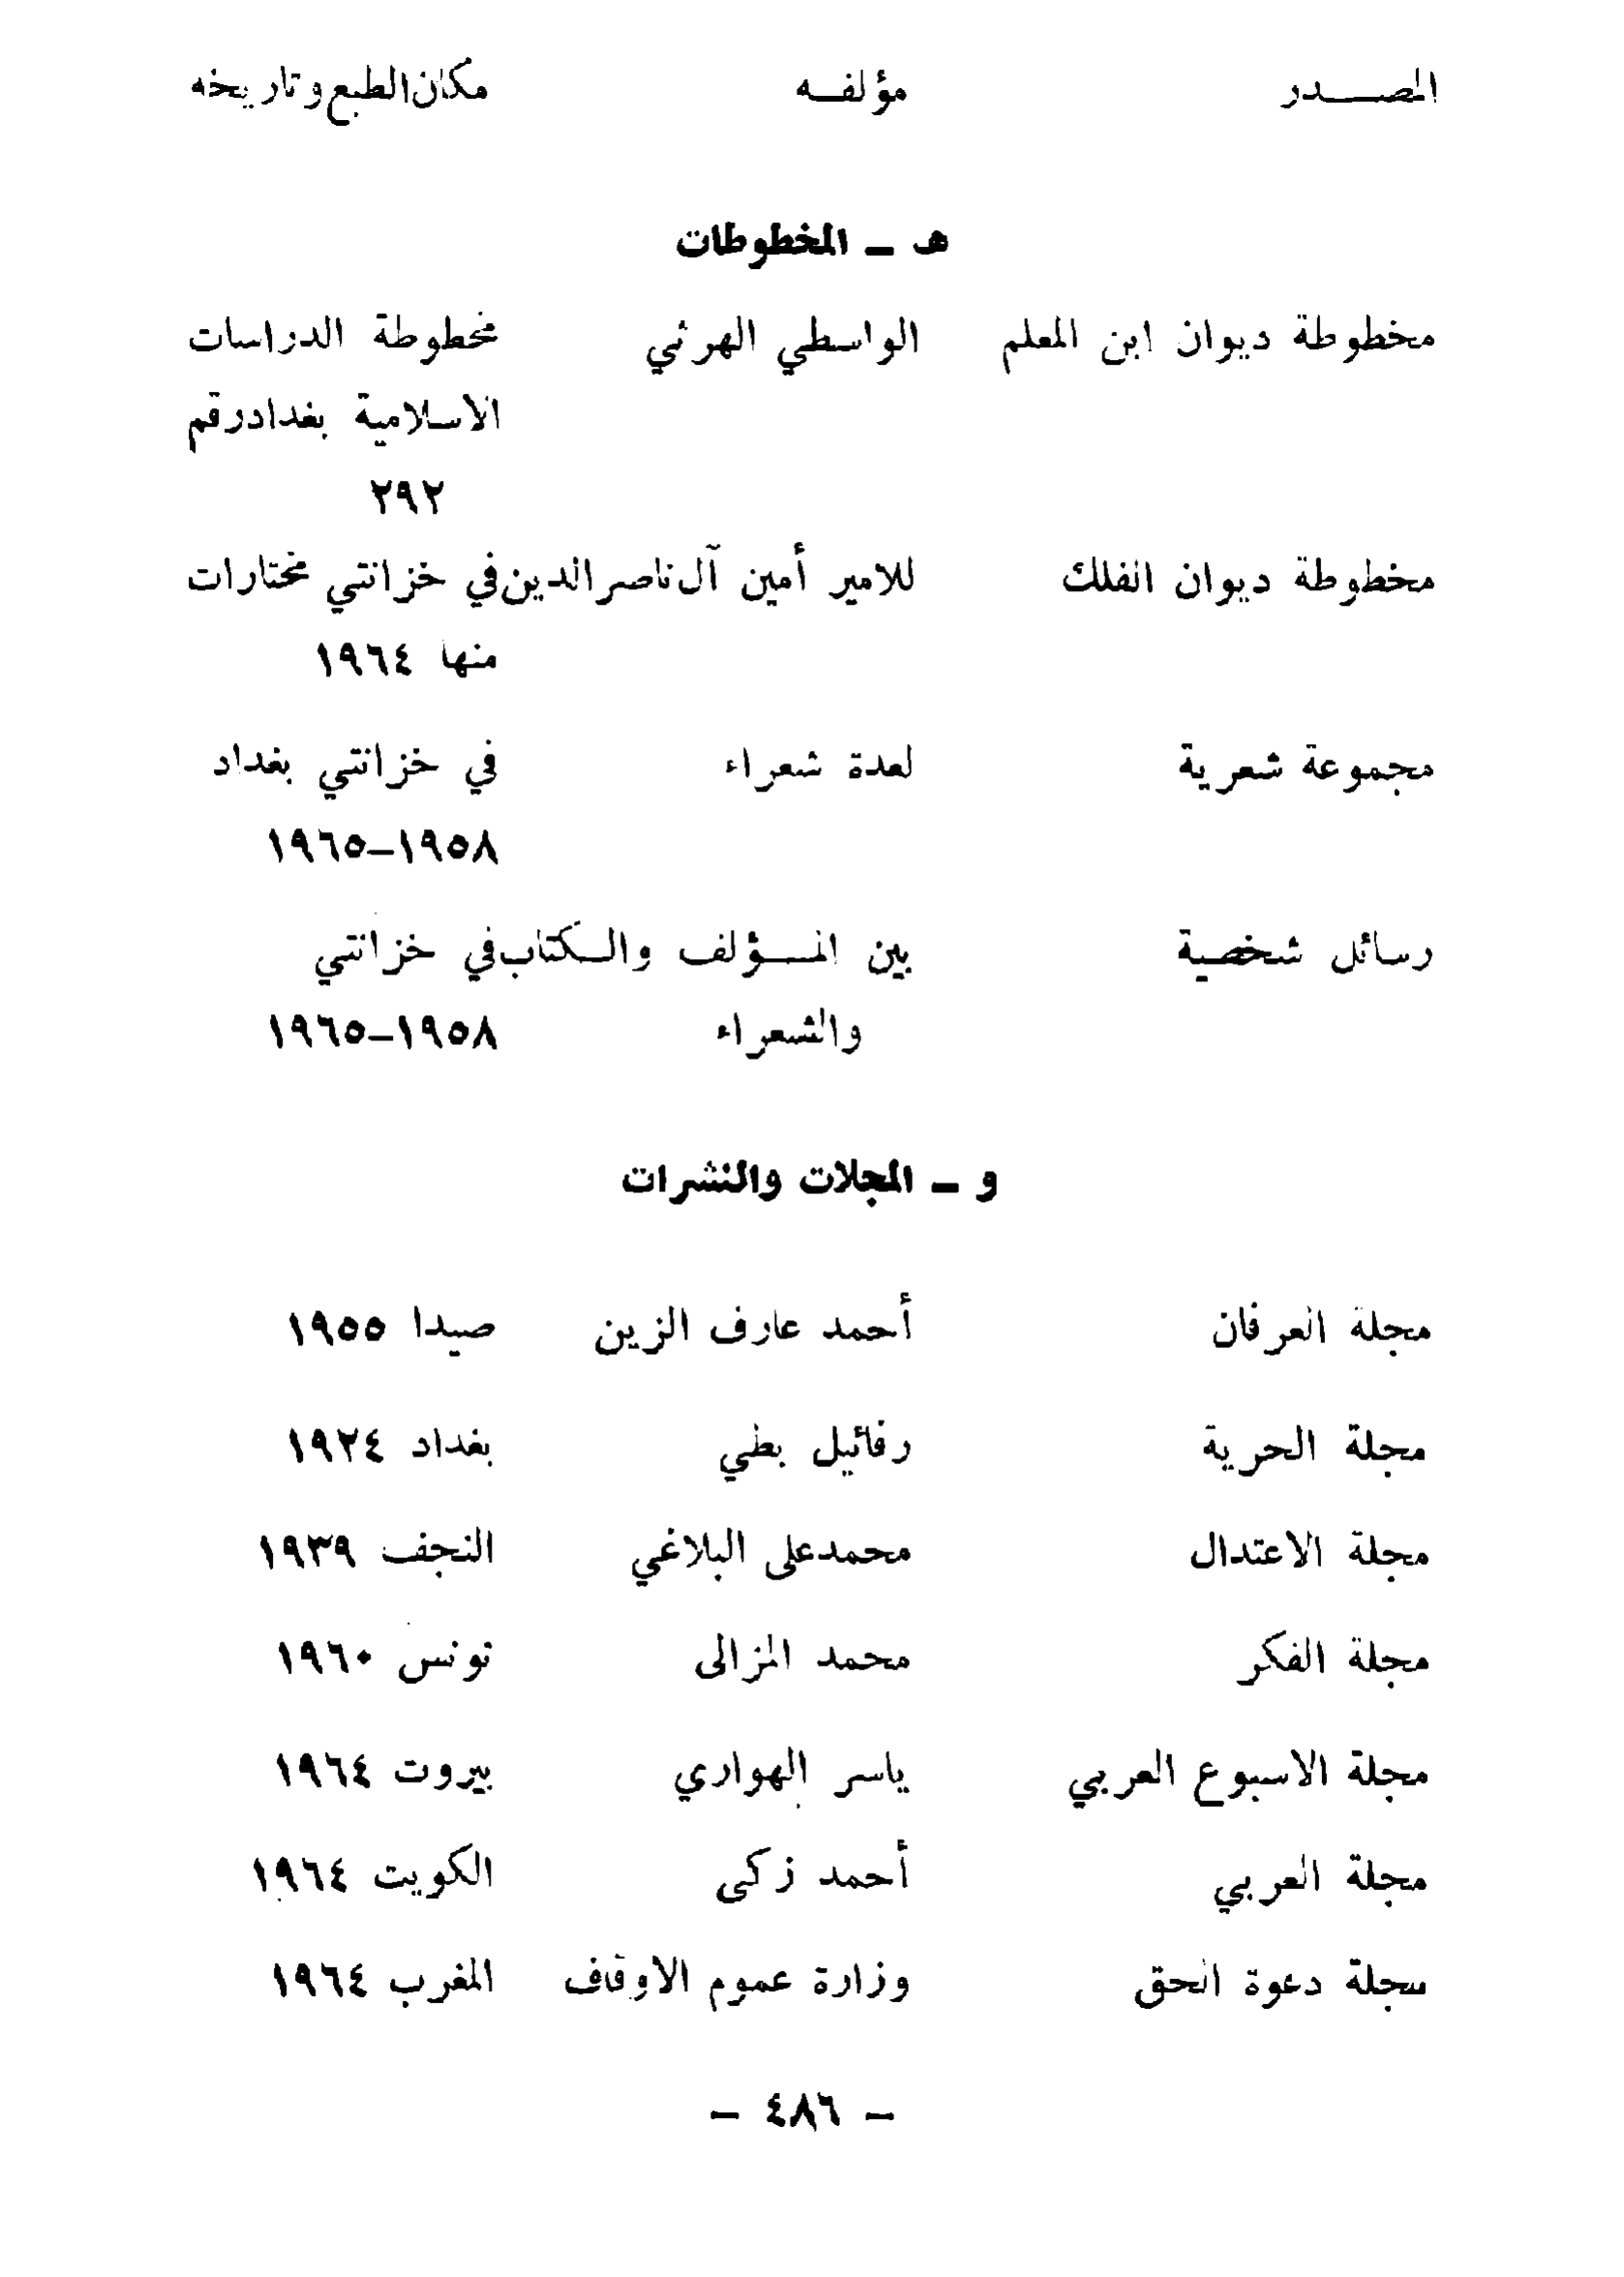 المصدر مؤلفه مكان الطبع وتاريخه
هـ ـ المخطوطات
مخطوطة ديوان ابن المعلم الواسطي الهرثي مخطوطة الدراسات
الاسلامية بغداد رقم
٢٩٢
مخطوطة ديوان الفلك للامير أمين آل ناصر الدين في خزانتي مختارات
منها ١٩٦٤
مجموعة شعرية لعدة شعراء في خزانتي بغداد
١٩٥٨ـ١٩٦٥
رسائل شخصية بين المؤلف والكتاب في خزانتي
والشعراء ١٩٥٨ـ١٩٦٥
و ـ المجلات والنشرات
مجلة العرفان أحمد عارف الزين صيدا ١٩٥٥
مجلة الحرية رفائيل بطي بغداد ١٩٢٤
مجلة الاعتدال محمد على البلاغي النجف ١٩٣٩
مجلة الفكر محمد المزالى تونس ١٩٦٠
مجلة الاسبوع العربي ياسر الهواري بيروت ١٩٦٤
مجلة العربي أحمد زكى الكويت ١٩٦٤
مجلة دعوة الحق وزارة عموم الاوقاف المغرب ١٩٦٤
ـ ٤٨٦ ـ